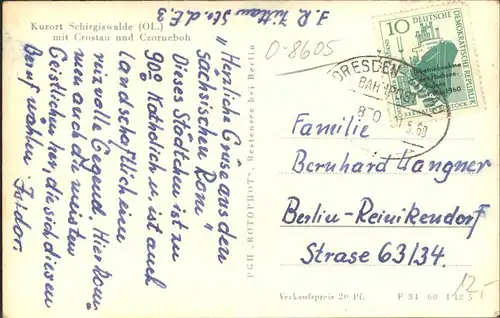 Kurort Schirgiswalde (OL.)
mit Crostau und Czorneboh
J. R. Zittau Str. d. E. 3
D-8605
"Herzliche Grüse aus den
sächsischen Rom"
Dieses Städtchen ist zu
90% Katholich u. ist auch
landschaftlich eine
reizvolle Gegend. Hier kom-
men auch die meisten
Geistlichen her, die sich diesen
Beruf wählen. Isidor.
PGH „ROTOPHOT", Bestensee bei Berlin
10 DEUTSCHE
DEMOKRATISCHE REPUBLIK
1960
DRESDEN
BAHNPOST
5.60
Familie
Bernhard Wangner
Berlin-Reinikendorf
Strase 63/34.
12,-
Verkaufspreis 20 Pf.
F 34 60 I 12 5